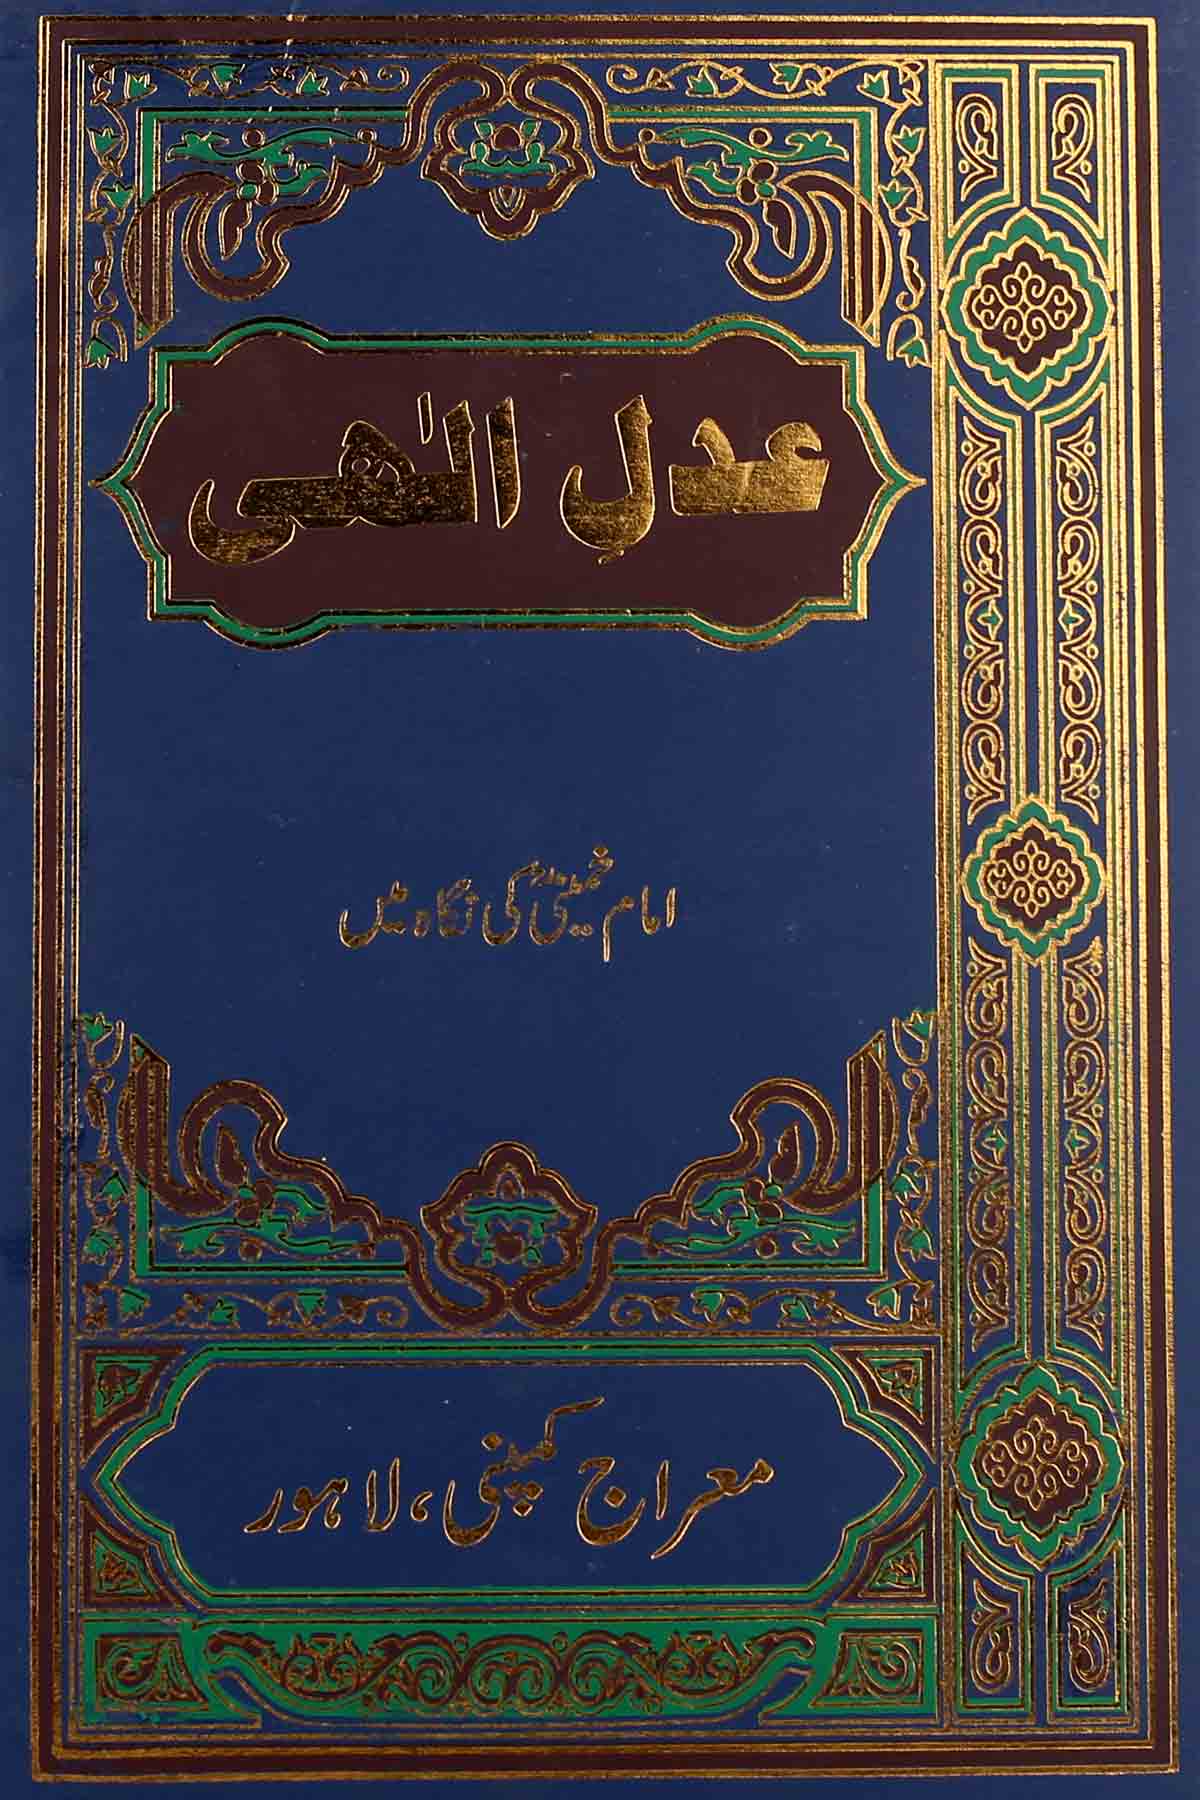 عدلِ الٰھی
امام خمینیؒ کی نگاہ میں
معراج کمپنی، لاہور